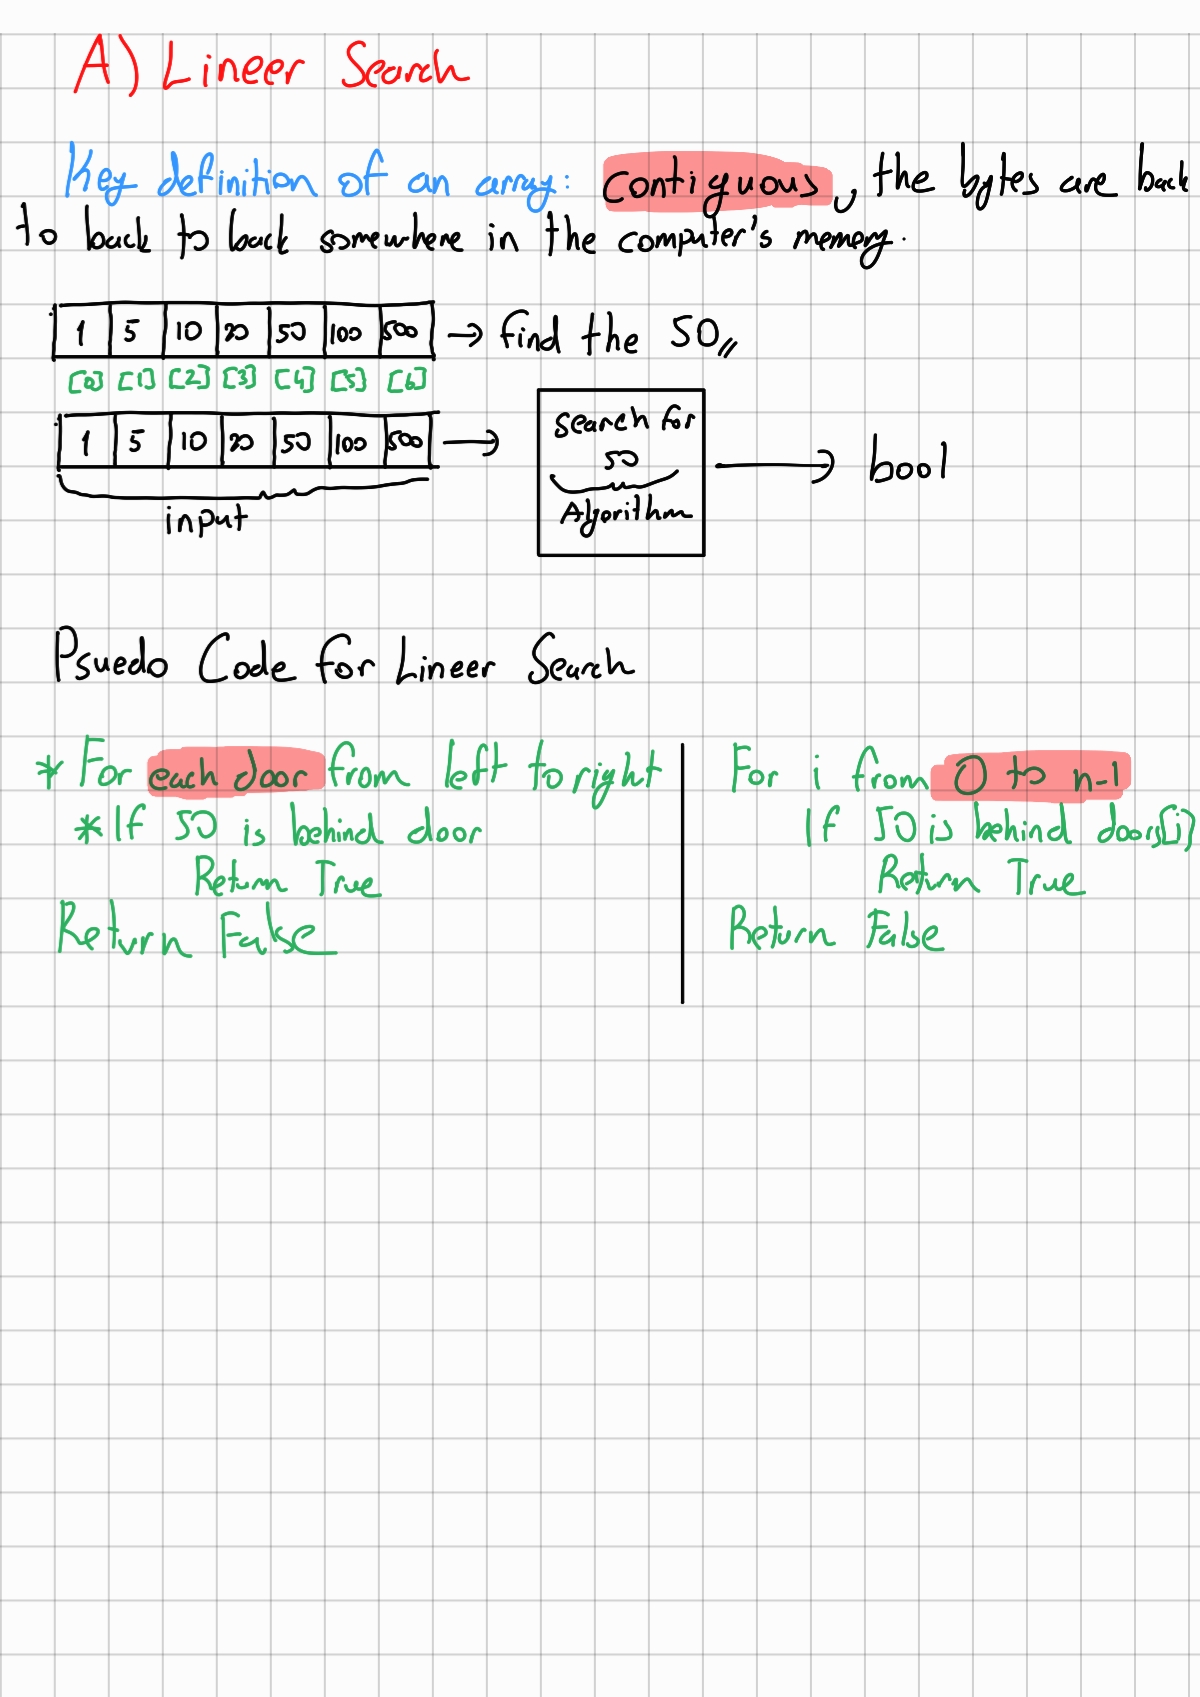 A) Lineer Search
Key definition of an array: contiguous, the bytes are back
to back to back somewhere in the computer's memory.
1 5 10 20 50 100 500 → find the 50
[0] [1] [2] [3] [4] [5] [6]
1 5 10 20 50 100 500 → search for → bool
50
input
Algorithm
Psuedo Code for Lineer Search
* For each door from left to right
* If 50 is behind door
Return True
Return False
For i from 0 to n-1
If 50 is behind doors[i]
Return True
Return False